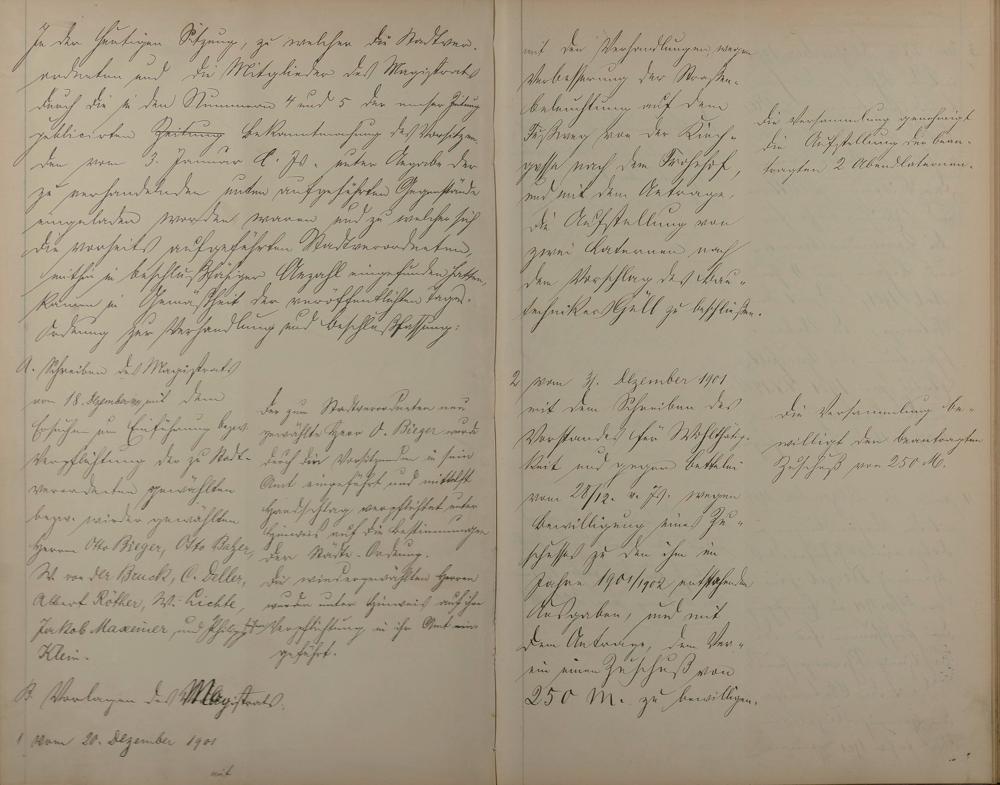 In der heutigen Sitzung, zu welcher die Stadtver-
ordneten und die Mitglieder des Magistrats
durch die in den Nummern 4 und 5 der emser Zeitung
publicirten Zeitung Bekanntmachung des Vorsitzen-
den vom 3. Januar l. Js. unter Angabe der
zu verhandelnden unten aufgeführten Gegenstände
eingeladen worden waren und zu welcher sich
die vorseits aufgeführten Stadtverordneten,
mithin in beschlußfähiger Anzahl eingefunden hatten,
kamen in Gemäßheit der veröffentlichten Tages-
ordnung zur Verhandlung und Beschlußfassung:
A. Schreiben des Magistrats
vom 18. Dezember mit dem
Ersuchen um Einführung bezw.
Verpflichtung der zu Stadt-
verordneten gewählten
bezw. wieder gewählten
Herrn Otto Bieger, Otto Balzer,
W. von der Bruck, C. Deller,
Albert Röther, W. Lichte,
Jakob Maxeiner, und Philipp
Klein.
Der zum Stadtverordneten neu
gewählte Herr O. Bieger wurde
durch den Vorsitzenden in sein
Amt eingeführt und mittelst
Handschlag verpflichtet unter
Hinweis auf die Bestimmungen
der Städte-Ordnung.
Die wiedergewählten Herren
wurden unter Hinweis auf ihre
Verpflichtung in ihr Amt ein-
geführt.
B Vorlagen des Magistrats.
1 vom 20. Dezember 1901
mit
mit den Verhandlungen wegen
Verbesserung der Straßen-
beleuchtung auf dem
Fußweg von der Kirch-
gasse nach dem Froschhof,
und mit dem Antrage,
die Aufstellung von
zwei Laternen nach
dem Vorschlag des Bau-
technikers Schill zu beschließen.
Die Versammlung genehmigt
die Aufstellung der bean-
tragten 2 Abendlaternen.
2 vom 31. Dezember 1901
mit dem Schreiben des
Vorstandes für Wohlthätig-
keit und gegen Bettelei
vom 28/12. v. Js. wegen
Bewilligung eines Zu-
schusses zu den ihm im
Jahre 1901/1902 entstehenden
Ausgaben, und mit
dem Antrage, dem Ver-
ein einen Zuschuß von
250 M. zu bewilligen.
Die Versammlung be-
willigt den beantragten
Zuschuß von 250 M.